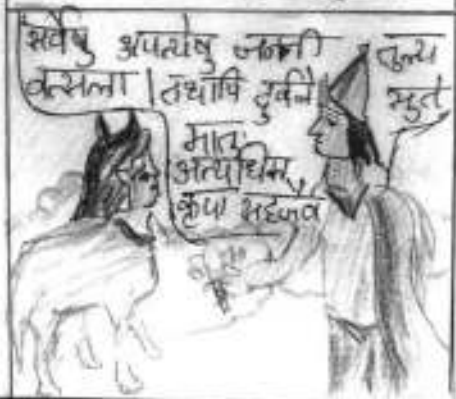 सर्वेषु अपत्येषु जननी तुल्य
वत्सला । तथापि दुर्बले सुते
मातुः
अत्यधिक
कृपा सहजैव